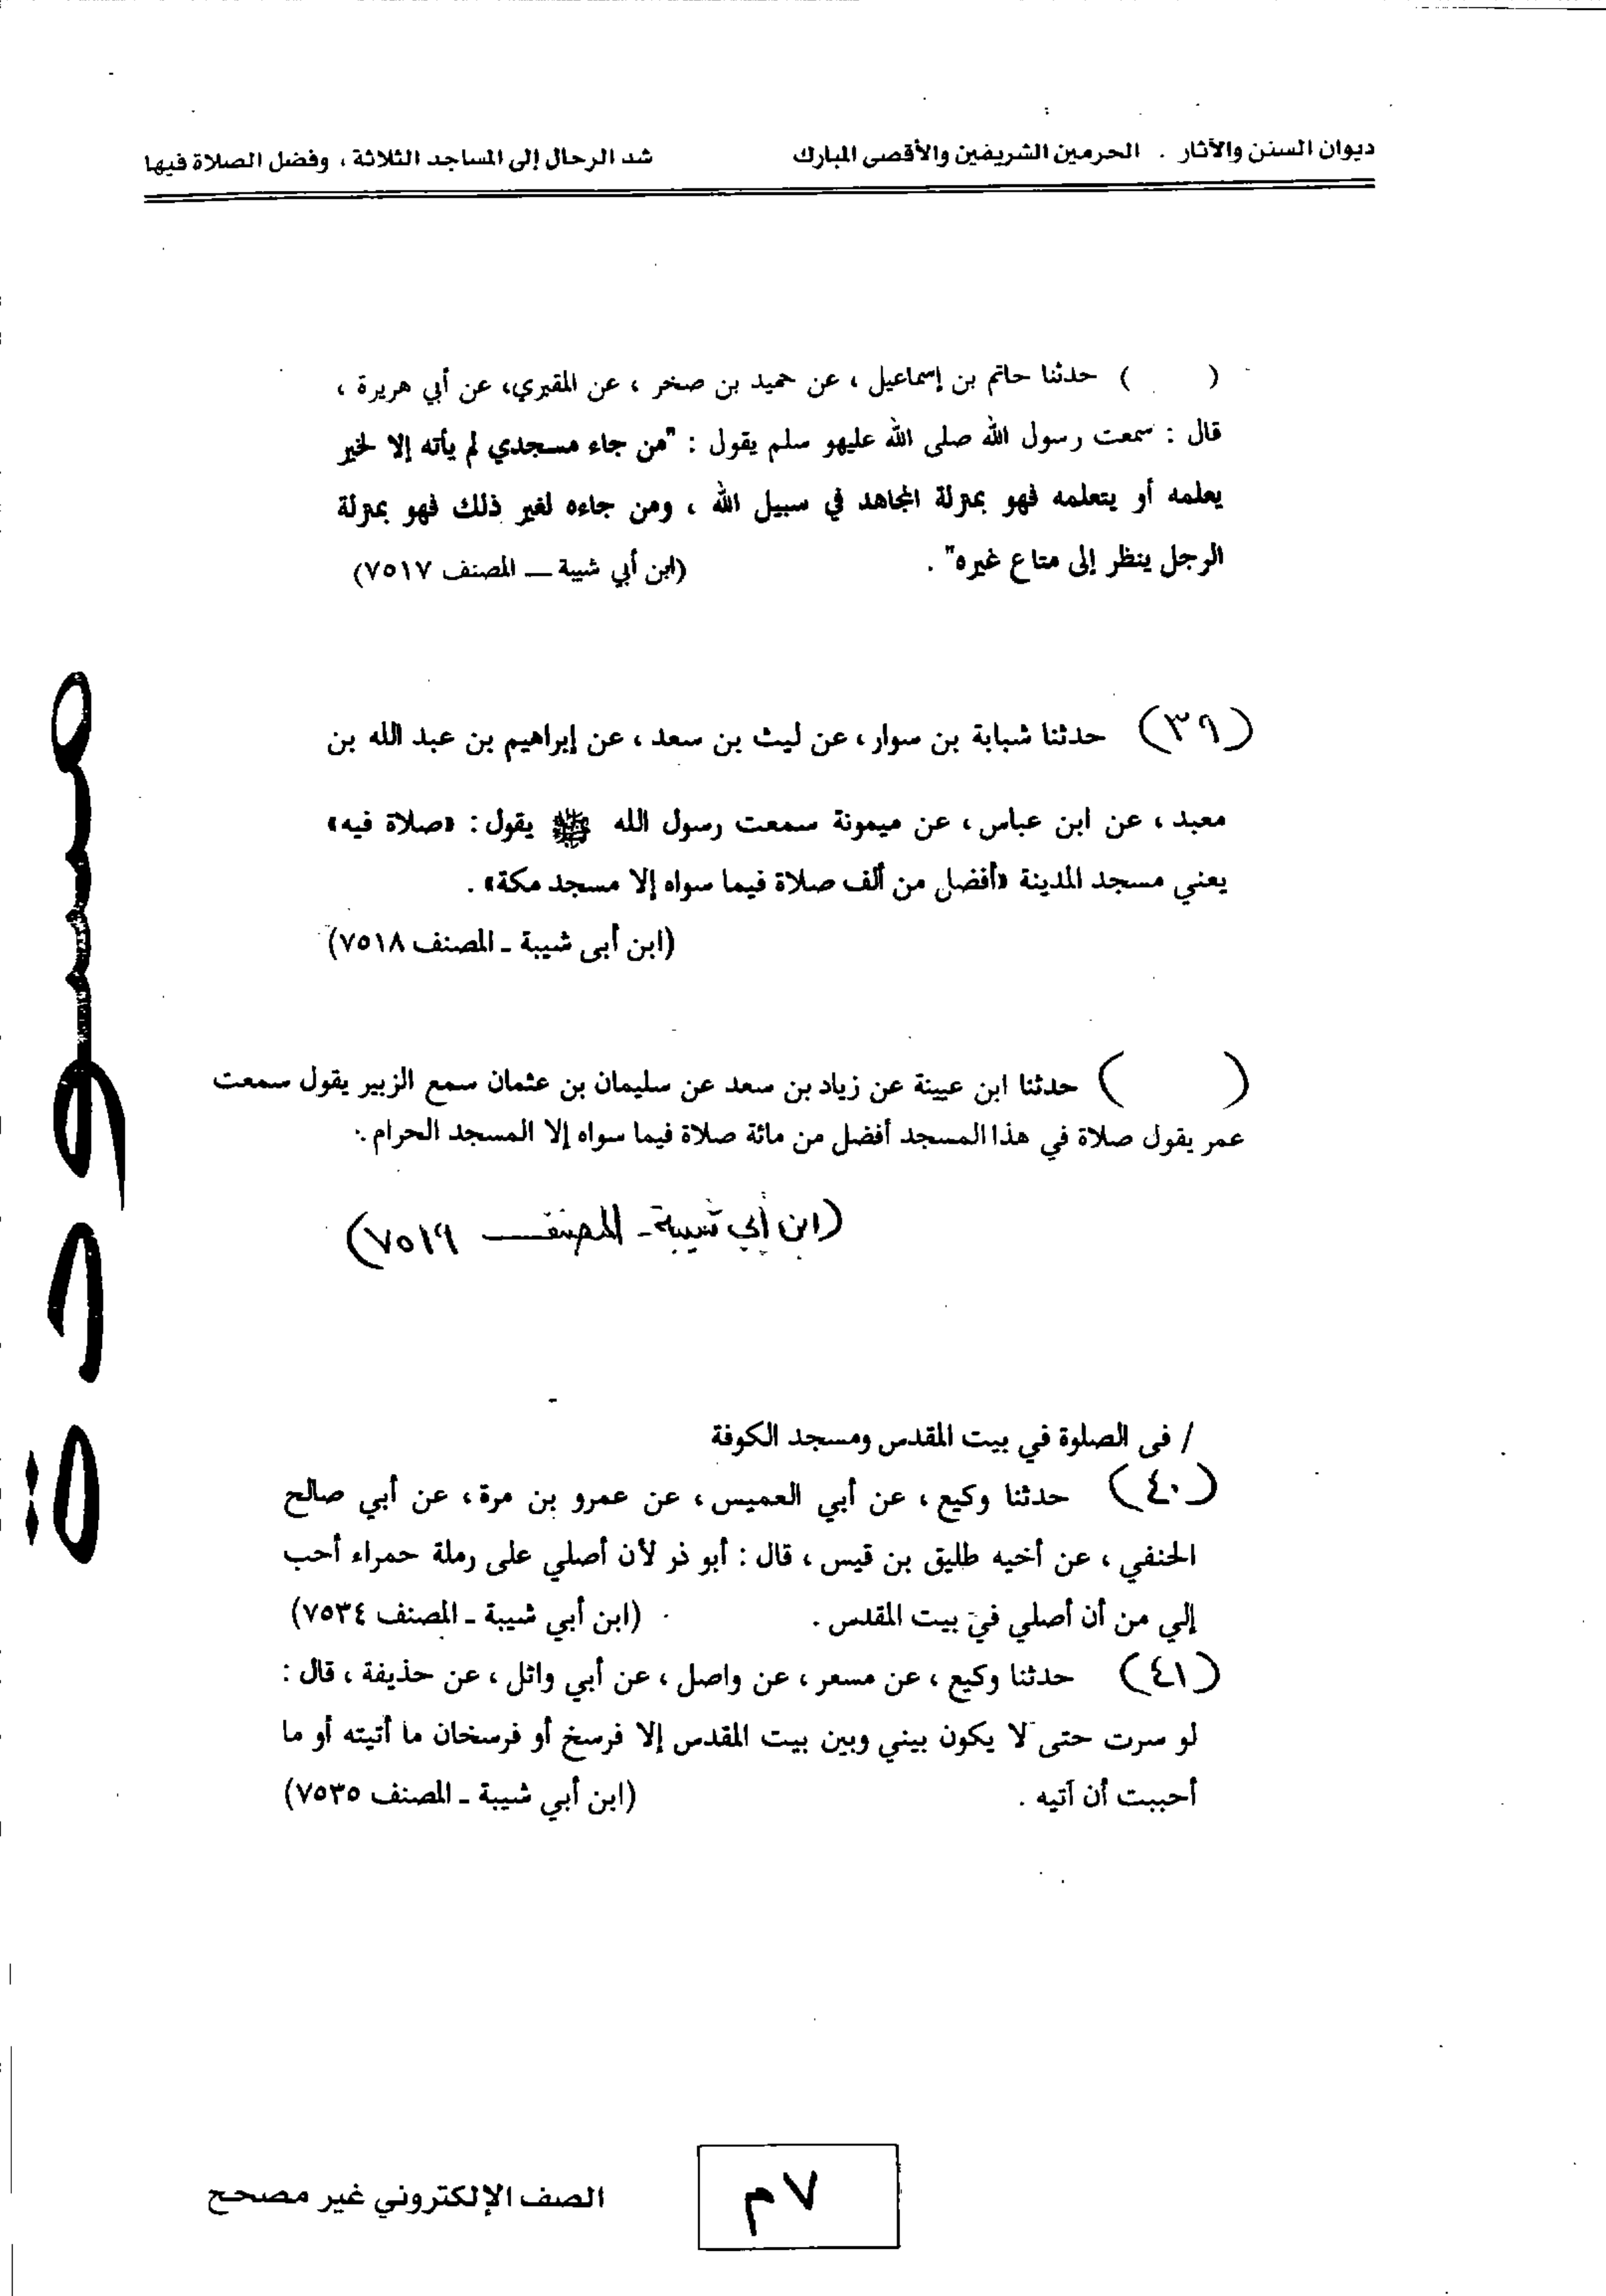 ديوان السنن والآثار . الحرمين الشريفين والأقصى المبارك شد الرحال إلى المساجد الثلاثة ، وفضل الصلاة فيها
( ) حدثنا حاتم بن إسماعيل ، عن حميد بن صخر ، عن المقبري، عن أبي هريرة ،
قال : سمعت رسول الله صلى الله عليهو سلم يقول : "من جاء مسجدي لم يأته إلا لخير
يعلمه أو يتعلمه فهو بمنزلة المجاهد في سبيل الله ، ومن جاءه لغير ذلك فهو بمنزلة
الرجل ينظر إلى متاع غيره" . (ابن أبي شيبة ــ المصنف ٧٥١٧)
(٣٩) حدثنا شبابة بن سوار ، عن ليث بن سعد ، عن إبراهيم بن عبد الله بن
معبد ، عن ابن عباس ، عن ميمونة سمعت رسول الله ﷺ يقول : «صلاة فيه»
يعني مسجد المدينة «أفضل من ألف صلاة فيما سواه إلا مسجد مكة» .
(ابن أبى شيبة ـ المصنف ٧٥١٨)
( ) حدثنا ابن عيينة عن زياد بن سعد عن سليمان بن عثمان سمع الزبير يقول سمعت
عمر يقول صلاة في هذا المسجد أفضل من مائة صلاة فيما سواه إلا المسجد الحرام .
(ابن أبي شيبة ـ المصنف ٧٥١٩)
/ فى الصلوة في بيت المقدس ومسجد الكوفة
(٤٠) حدثنا وكيع ، عن أبي العميس ، عن عمرو بن مرة ، عن أبي صالح
الحنفي ، عن أخيه طليق بن قيس ، قال : أبو ذر لأن أصلي على رملة حمراء أحب
إلي من أن أصلي في بيت المقدس . (ابن أبي شيبة ـ المصنف ٧٥٣٤)
(٤١) حدثنا وكيع ، عن مسعر ، عن واصل ، عن أبي وائل ، عن حذيفة ، قال :
لو سرت حتى لا يكون بيني وبين بيت المقدس إلا فرسخ أو فرسخان ما أتيته أو ما
أحببت أن آتيه . (ابن أبي شيبة ـ المصنف ٧٥٣٥)
مسودة
٧م
الصف الإلكتروني غير مصحح